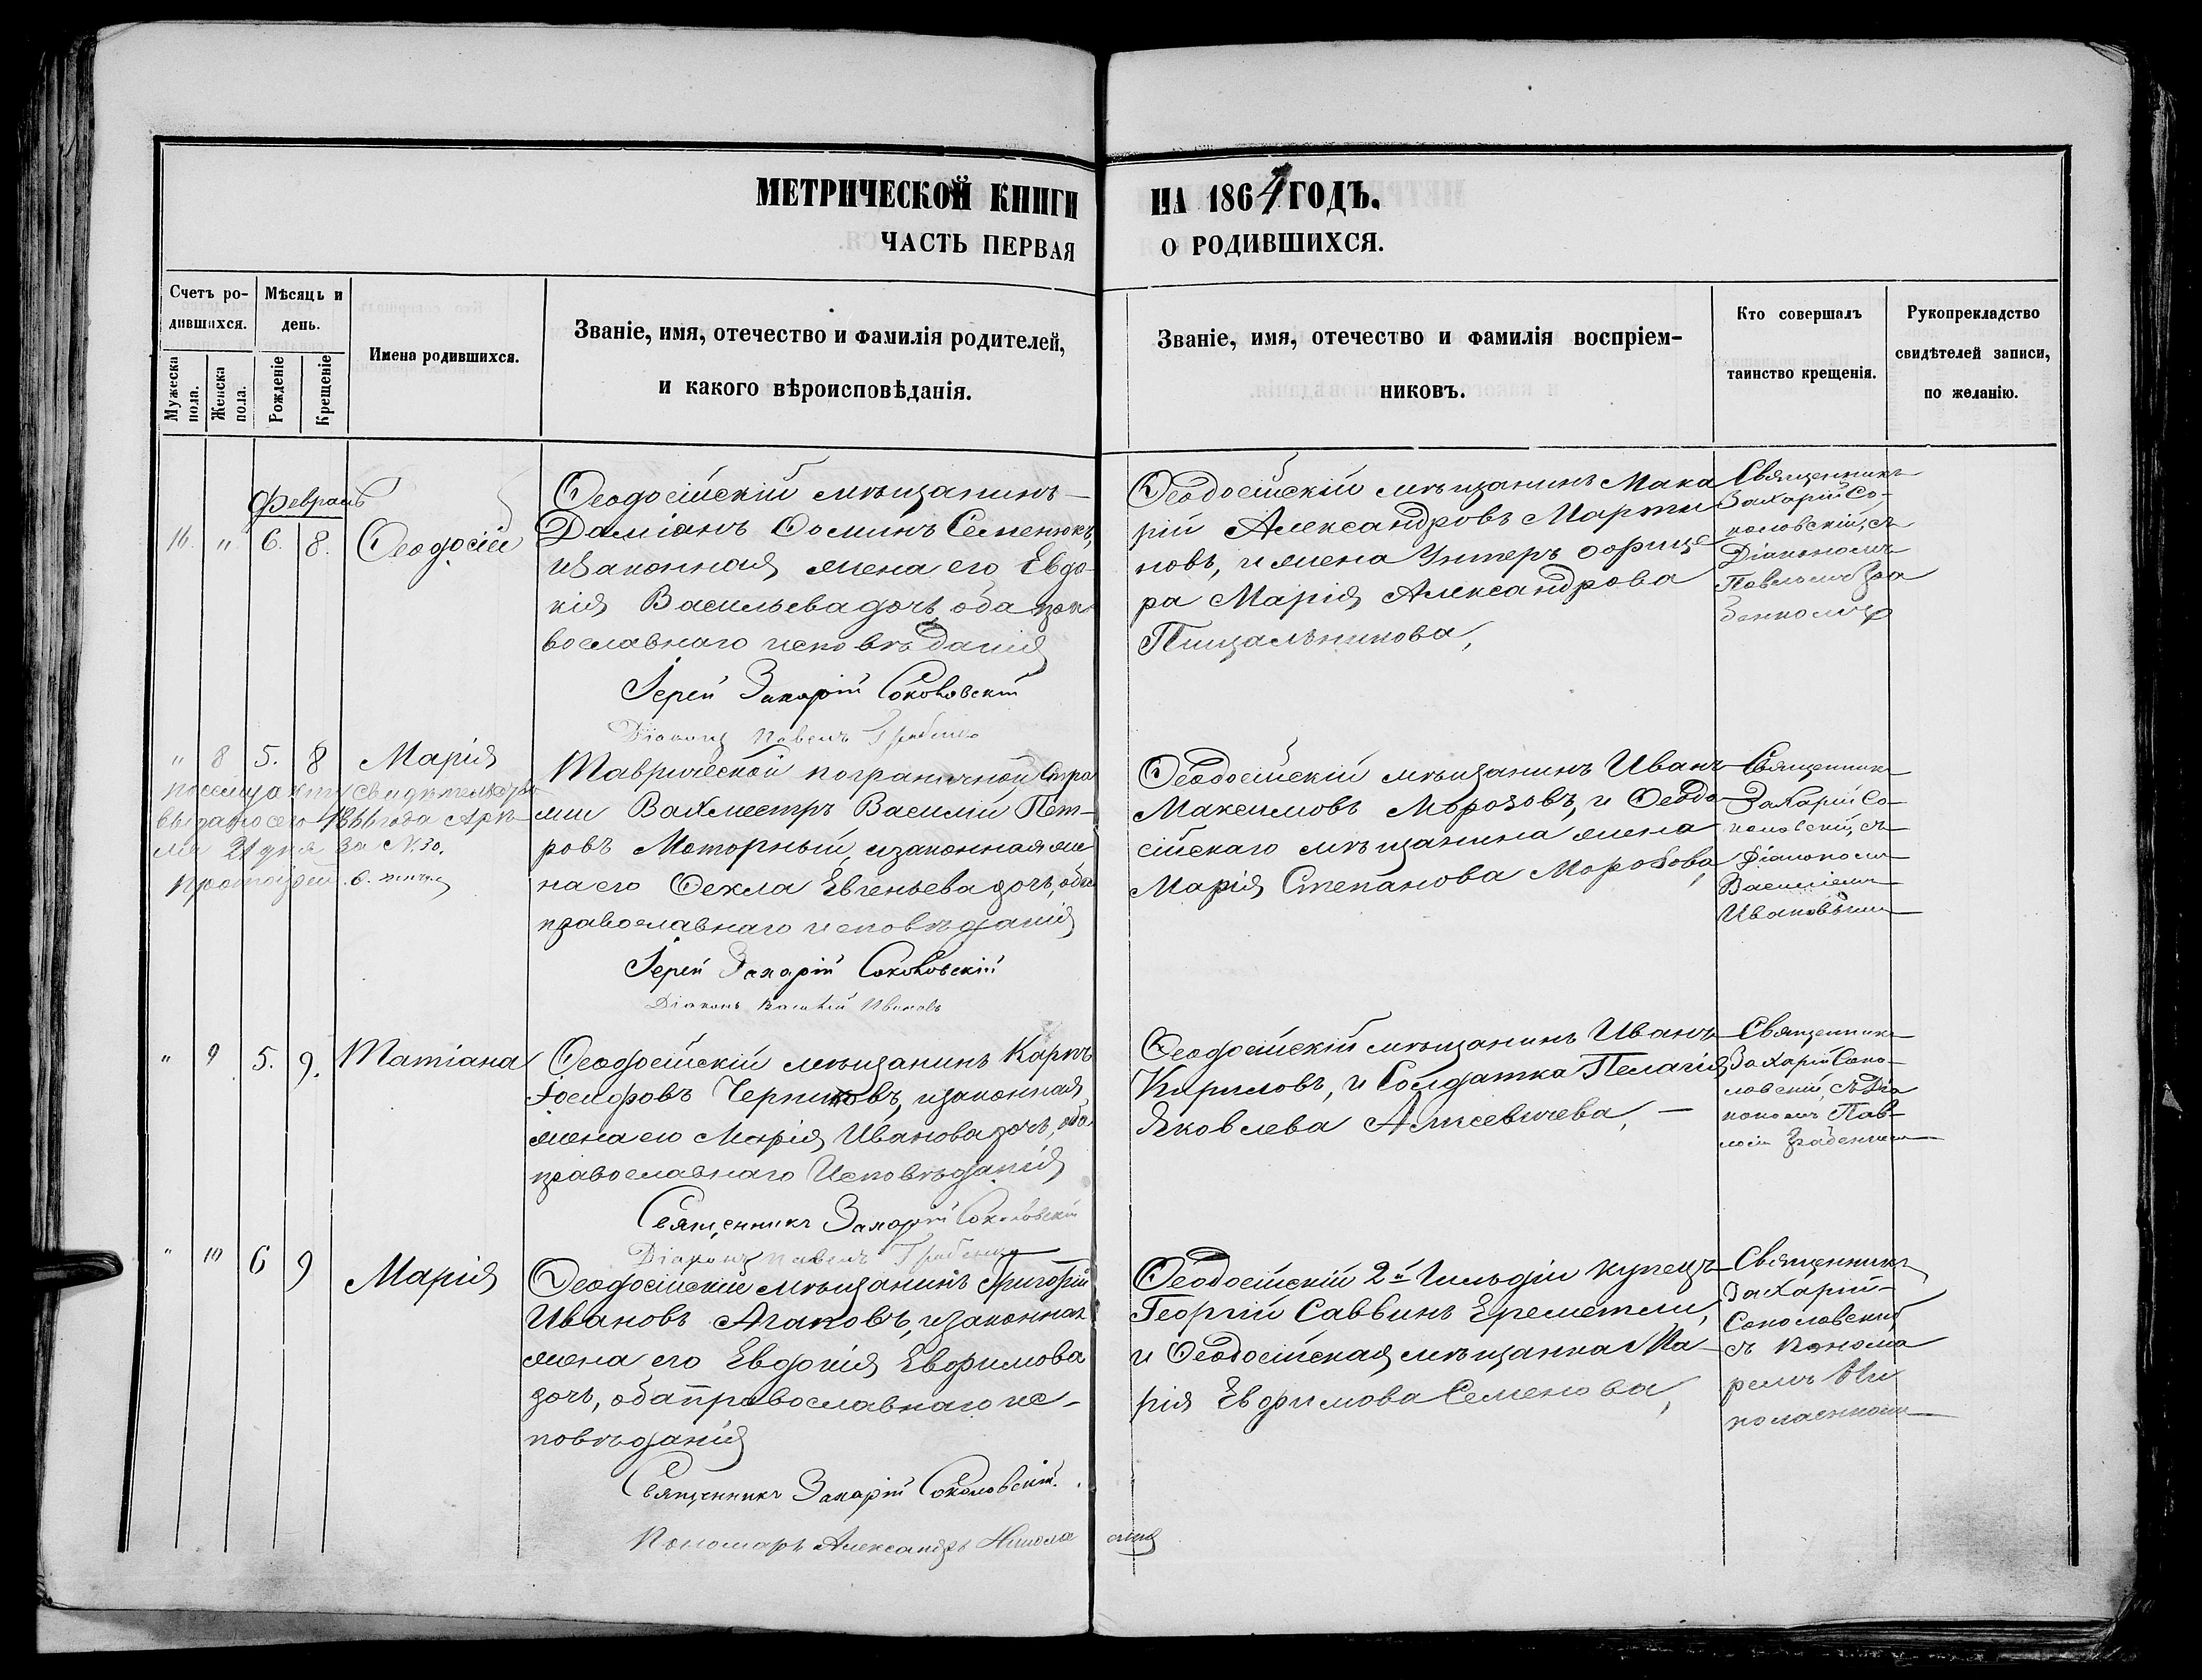 МЕТРИЧЕСКОЙ КНИГИ НА 1864 ГОДЪ.
ЧАСТЬ ПЕРВАЯ О РОДИВШИХСЯ.
Счетъ ро-
дившихся.
Мѣсяцъ и
день.
Мужеска
пола.
Женска
пола.
Рожденіе
Крещеніе
Имена родившихся.
Званіе, имя, отечество и фамилія родителей,
и какого вѣроисповѣданія.
Званіе, имя, отечество и фамилія воспріем-
никовъ.
Кто совершалъ
таинство крещенія.
Рукоприкладство
свидѣтелей записи,
по желанію.
Февраль
" 6. 8. Ѳеодосій
Ѳеодосійскій мѣщанинъ
Даміанъ Ѳоминъ Семенюкъ,
и законная жена его Евдо-
кія Васильева дочь, оба пра-
вославнаго исповѣданія
Іерей Захарій Соколовскій
Діаконъ Павелъ Грабенко
Ѳеодосійскій мѣщанинъ Мака
рій Александровъ Марти
новъ, и жена Унтеръ офице
ра Марія Александрова
Пищальникова,
Священникъ
Захарій Со-
коловскій, съ
Діакономъ
Павломъ Гра
бенкомъ
" 8 5. 8 Марія
свидѣтельство
выдано сего 1866 года Апрѣ-
ля 21 дня за №. 30.
Таврической пограничной Стра
жи Вахмистръ Василій Пет-
ровъ Моторный, и законная же
на его Ѳекла Евгеньева дочь, оба
православнаго исповѣданія
Іерей Захарій Соколовскій
Діаконъ Василій Ивановъ
Ѳеодосійскій мѣщанинъ Иванъ
Максимовъ Морозовъ, и Ѳеодо-
сійскаго мѣщанина жена
Марія Степанова Морозова,
Священникъ
Захарій Со-
коловскій, съ
Діакономъ
Василіемъ
Ивановымъ
" 9 5. 9. Татіана
Ѳеодосійскій мѣщанинъ Карпъ
Іосифовъ Черниковъ, и законная
жена его Марія Иванова дочь, оба
православнаго Исповѣданія
Священникъ Захарій Соколовскій
Діаконъ Павелъ Грабенко
Ѳеодосійскій мѣщанинъ Иванъ
Кириловъ, и Солдатка Пелагія
Яковлева
Священникъ
Захарій Соко-
ловскій, съ Діа
кономъ Пав-
ломъ Грабенкомъ
" 10 6 9 Марія
Ѳеодосійскій мѣщанинъ Григорій
Ивановъ Агаповъ, и законная
жена его Евдокія Евфимова
дочь, оба православнаго ис-
повѣданія
Священникъ Захарій Соколовскій.
Пономарь Александръ
Ѳеодосійскій 2й Гильдіи купецъ
Георгій Саввинъ Ереметли,
и Ѳеодосійская мѣщанка Ма-
рія Евфимова Семенова,
Священникъ
Захарій
Соколовскій
съ Понома
ремъ